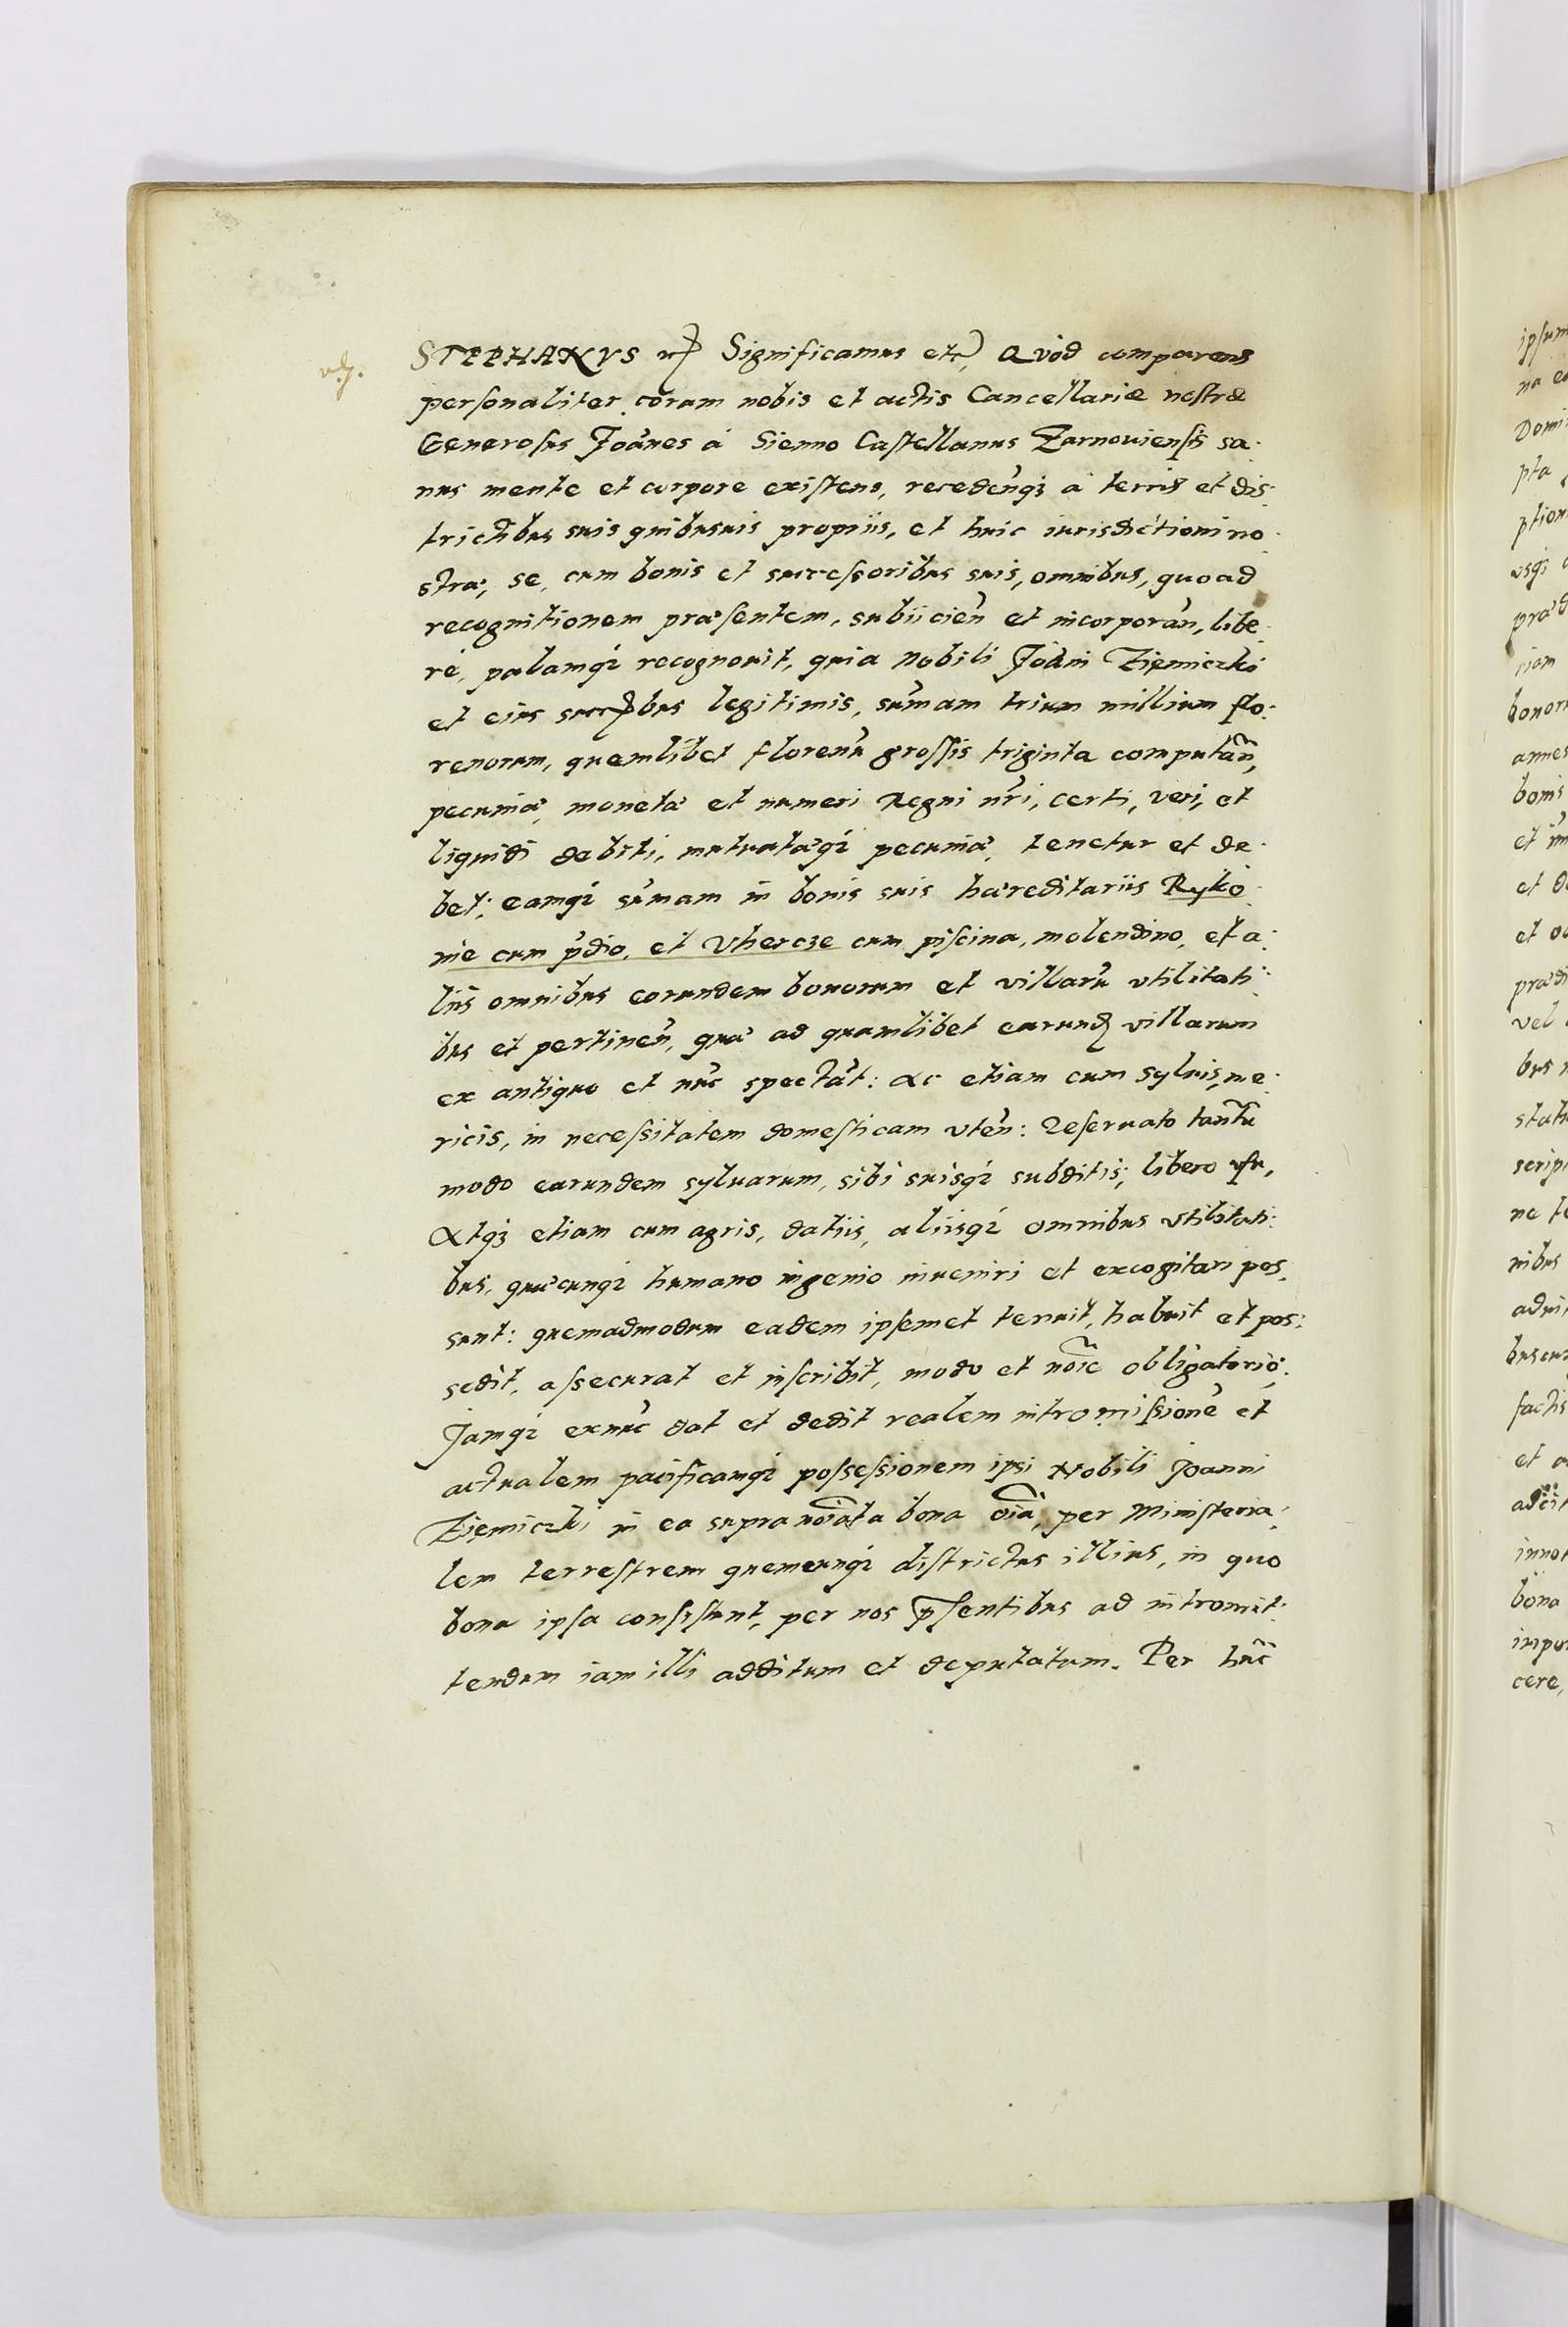 STEPHANVS Significamus etc, Quod comparens
personaliter coram nobis et actis Cancellariæ nostræ
Generosus Joān̄es à Sienno Castellanus Zarnouiensis sa-
nus mente et corpore existens, recedeñqꝫ à terris et dis-
trictibus suis quibusuis propriis, et huic iurisdictioni no-
stræ, se, cum bonis et successoribus suis, omnibus, quoad
recognitionem præsentem, subiicien̄ et incorporan̄, libe-
rè, palamqꝫ recognouit, quia Nobili Joāni Ziemiczki
et eius succꝭbus legitimis, sūmam trium millium flo-
renorum, quemlibet florenū grossis triginta computan̄,
pecuniæ, monetæ et numeri Regni nr̄i, certi, veri, et
liquidi debiti, mutuatæqꝫ pecuniæ, tenetur et de-
bet; eamqꝫ sūmam in bonis suis hæreditariis Ryko-
nie cum p̄dio, et Vhercze cum piscina, molendino, et a-
liis omnibus eorundem bonorum et villarū vtilitati-
bus et pertinen̄, quæ ad quamlibet earundꝭ villarum
ex antiquo et nūc spectāt: ac etiam cum syluis, me-
ricis, in necessitatem domesticam vten̄: Reseruato tantū
modo earundem syluarum, sibi suisqꝫ subditis, libero usu,
Atqꝫ etiam cum agris, datiis, aliisqꝫ omnibus vtilitati-
bus, quæcunqꝫ humano ingenio inueniri et excogitari pos-
sunt: quemadmodum eadem ipsemet tenuit, habuit et pos-
sedit, assecurat et inscribit, modo et noīe obligatorio.
Jamqꝫ exnūc dat et dedit realem intromissionē et
actualem pacificamqꝫ possessionem ipsi Nobili Joanni
Ziemiczki in ea supranoīata bona oīa, per Ministeria-
lem terrestrem quemcunqꝫ districtus illius, in quo
bona ipsa consistunt, per nos p̄sentibus ad intromit-
tendum iam illi additum et deputatum. Per hūc